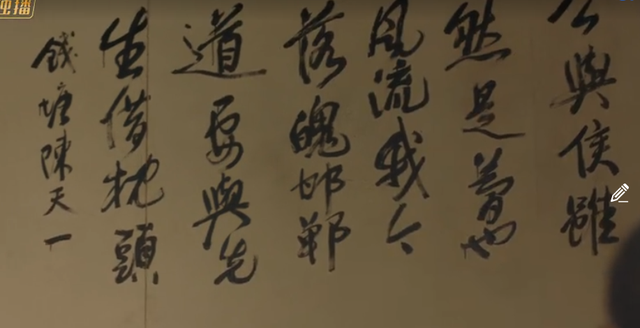 公與侯雖
然是夢也
風流我今
落魄邯鄲
道要與先
生借枕頭
錢塘陳天一